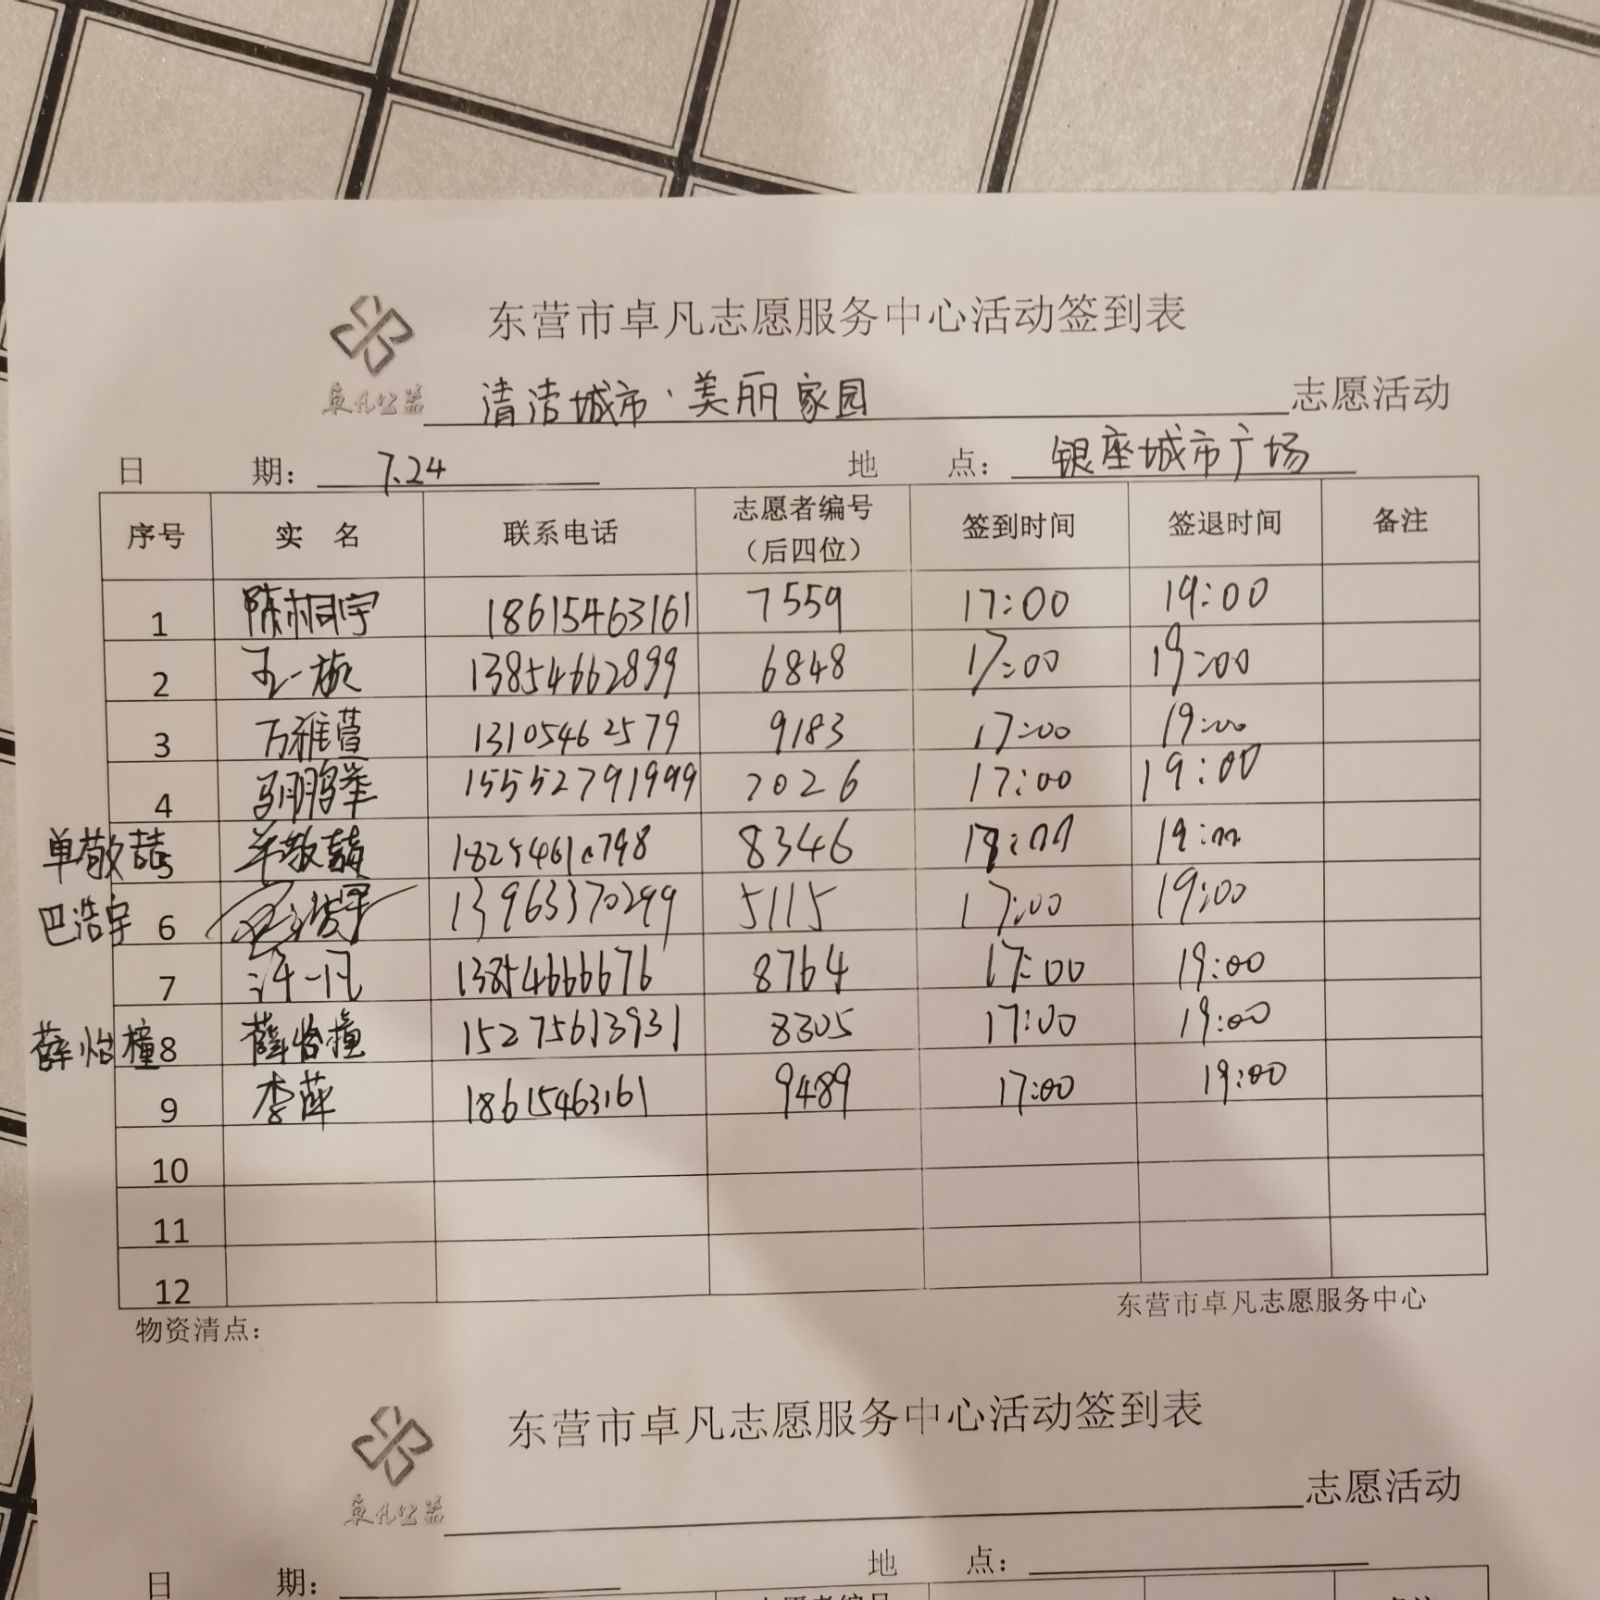 东营市卓凡志愿服务中心活动签到表
卓凡公益
清洁城市·美丽家园 志愿活动
日 期: 7.24 地 点: 银座城市广场
序号 实 名 联系电话 志愿者编号(后四位) 签到时间 签退时间 备注
1 陈桐宇 18615463161 7559 17:00 19:00
2 13854662899 6848 17:00 19:00
3 万雅萱 13105462579 9183 17:00 19:00
4 马鹏举 15552791999 7026 17:00 19:00
单敬喆 5 单敬喆 8346 19:00
巴浩宇 6 巴浩宇 13963370299 5115 17:00 19:00
7 许一凡 13854666676 8764 17:00 19:00
薛怡橦 8 薛怡橦 15275613931 8305 17:00 19:00
9 李萍 18615463161 9489 17:00 19:00
10
11
12
东营市卓凡志愿服务中心
物资清点:
东营市卓凡志愿服务中心活动签到表
卓凡公益
志愿活动
日 期: 地 点: